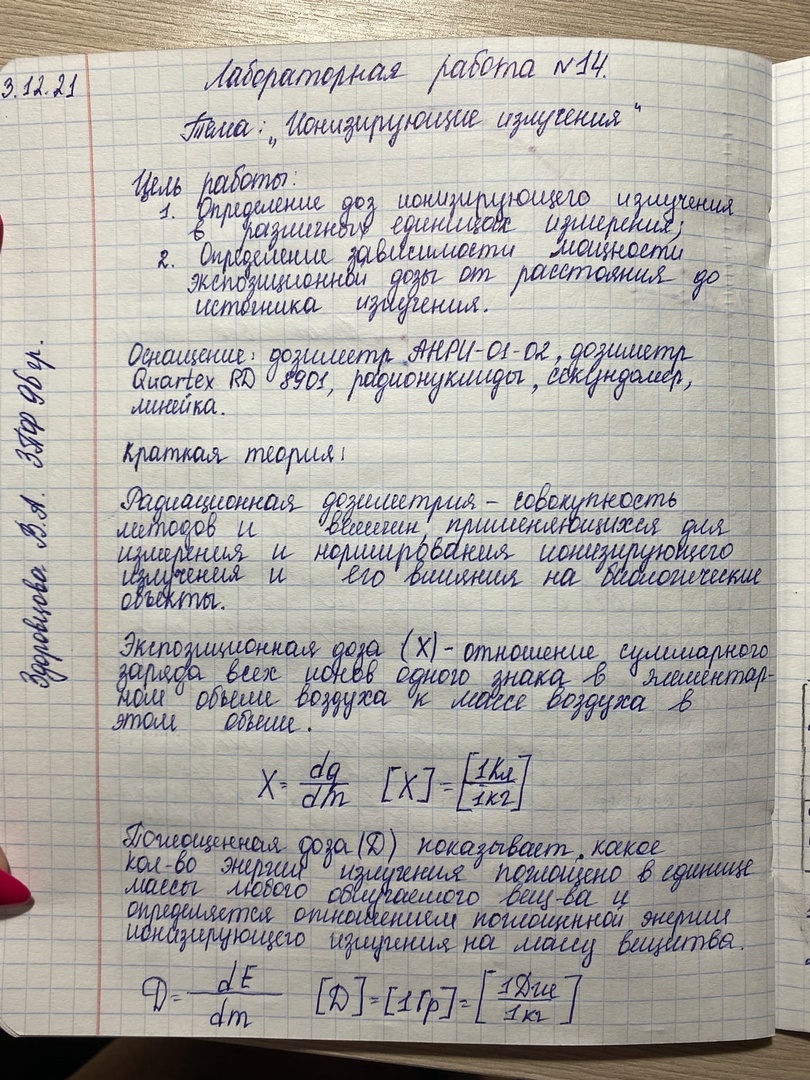 3.12.21
Лабораторная работа №14.
Тема: „Ионизирующие излучения"
Цель работы:
1. Определение доз ионизирующего излучения
в различных единицах измерения;
2. Определение зависимости мощности
экспозиционной дозы от расстояния до
источника излучения.
Оснащение: дозиметр АНРИ-01-02, дозиметр
Quartex RD 8901, радионуклиды, секундомер,
линейка.
Краткая теория:
Радиационная дозиметрия - совокупность
методов и величин применяющихся для
измерения и нормирования ионизирующего
излучения и его влияния на биологические
объекты.
Экспозиционная доза (X) - отношение суммарного
заряда всех ионов одного знака в элементар-
ном объеме воздуха к массе воздуха в
этом объеме.
X = dq/dm [X] = [1Кл/1кг]
Поглощенная доза (D) показывает, какое
кол-во энергии излучения поглощено в единице
массы любого облучаемого вещ-ва и
определяется отношением поглощенной энергии
ионизирующего излучения на массу вещества.
D = dE/dm [D] = [1Гр] = [1Дж/1кг]
Здоровцова В.А. 3ПФ 9б гр.